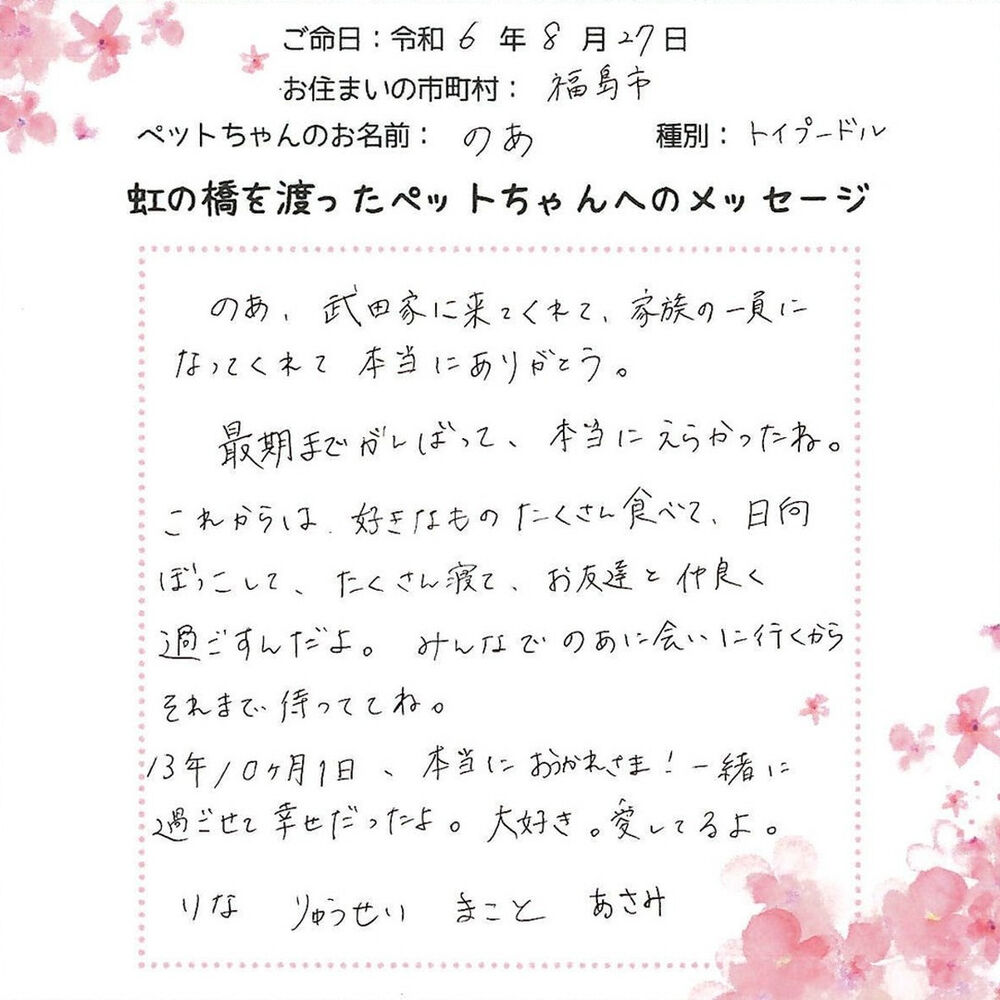 ご命日：令和 6 年 8 月 27 日
お住まいの市町村： 福島市
ペットちゃんのお名前： のあ 種別： トイプードル
虹の橋を渡ったペットちゃんへのメッセージ
のあ、武田家に来てくれて、家族の一員に
なってくれて 本当にありがとう。
最期までがんばって、本当にえらかったね。
これからは、好きなものたくさん食べて、日向
ぼっこして、たくさん寝て、お友達と仲良く
過ごすんだよ。みんなでのあに会いに行くから
それまで待っててね。
13年10ヶ月1日、本当におつかれさま！一緒に
過ごせて幸せだったよ。大好き。愛してるよ。
りな りゅうせい まこと あさみ